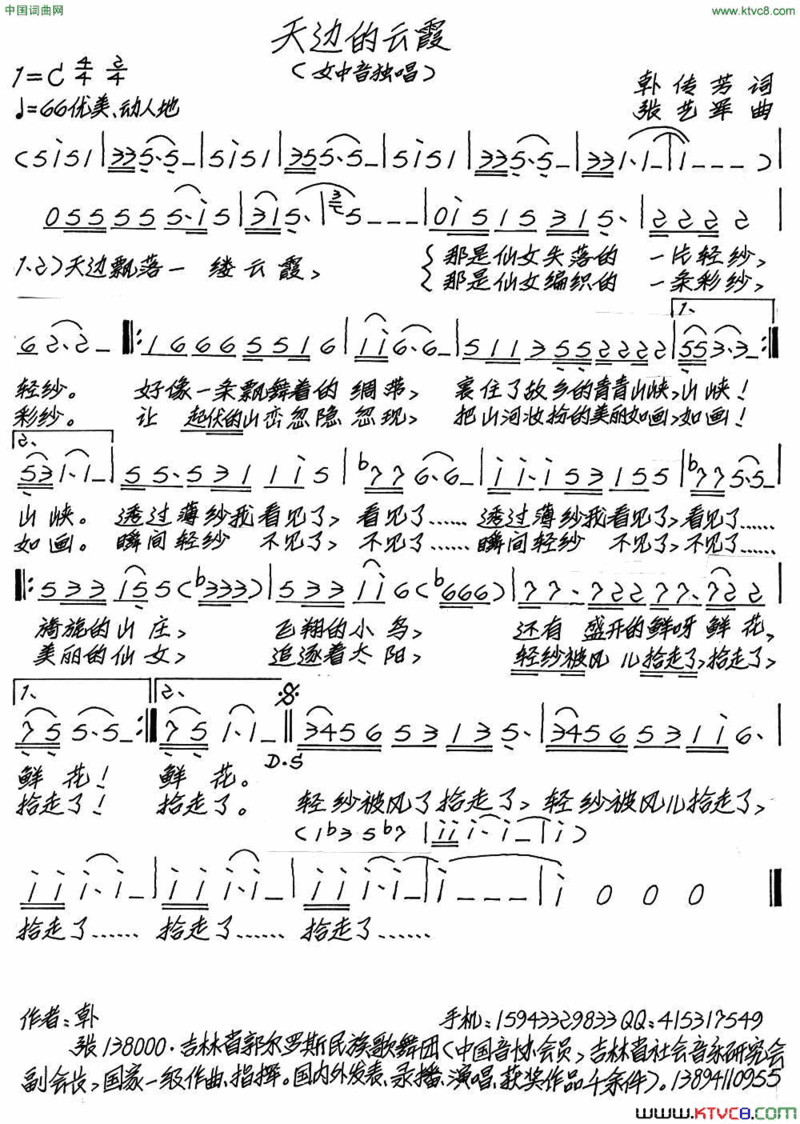 中国词曲网
www.ktvc8.com
天边的云霞
（女中音独唱）
1=C 4/4 2/4
♩=66优美、动人地
卦传芳 词
张艺军 曲
(5i51|335·5-|5i51|3555·5-|5i51|335·5-|331·1-|1---)
055555·i5|3i5·|5---|0i515315·|2222
1.2)天边飘落一 缕云霞，
那是仙女失落的 一片轻纱，
那是仙女编织的 一条彩纱，
62·2-‖:16665516|ii6·6-|5113552222|553·3-:‖
轻纱。 好像一条飘舞着的 绸带， 裹住了故乡的青青山峡，山峡！
彩纱。 让 起伏的山峦忽隐忽现， 把山河妆扮的美丽如画，如画！
531·1-|55·5311i5|b776·6-|ii·i53155|b775·5-|
山峡。 透过薄纱我看见了， 看见了…… 透过薄纱我看见了，看见了……
如画。 瞬间轻纱 不见了， 不见了…… 瞬间轻纱 不见了，不见了……
‖:533i55(b333)|533ii6(b666)|77·722277·722|
旖旎的山庄， 飞翔的小鸟， 还有 盛开的鲜呀 鲜花，
美丽的仙女， 追逐着太阳， 轻纱被风儿拾走了，拾走了，
1. 755·5-:‖ 2. 751·1-‖345653135·|3456531i6·|
D.S
鲜花！ 鲜花。
拾走了！ 拾走了。 轻纱被风了拾走了， 轻纱被风儿拾走了，
(1b35b7|iii·i-|i)
iii·i-|iii·i-|iii·i-|i---|i000‖
拾走了…… 拾走了…… 拾走了……
作者：卦 手机：15943329833QQ：415317549
张138000·吉林省郭尔罗斯民族歌舞团（中国音协会员，吉林省社会音乐研究会
副会长，国家一级作曲、指挥。国内外发表、录播、演唱、获奖作品千余件）。13894110955
www.KTVC8.com